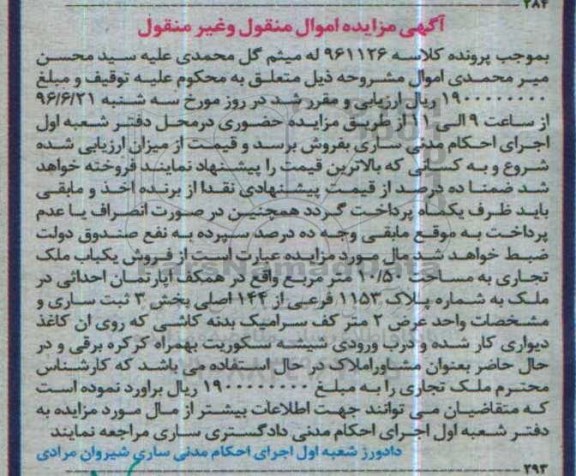 ۲۸۴
آگهی مزایده اموال منقول وغیر منقول
بموجب پرونده کلاسه ۹۶۱۱۲۶ له میثم گل محمدی علیه سید محسن
میر محمدی اموال مشروحه ذیل متعلق به محکوم علیه توقیف و مبلغ
ریال ارزیابی و مقرر شد در روز مورخ سه شنبه ۹۶/۶/۲۱
از ساعت ۹ الی ۱۱ از طریق مزایده حضوری درمحل دفتر شعبه اول
اجرای احکام مدنی ساری بفروش برسد و قیمت از میزان ارزیابی شده
شروع و به کسانی که بالاترین قیمت را پیشنهاد نمایند فروخته خواهد
شد ضمنا ده درصد از قیمت پیشنهادی نقدا از برنده اخذ و مابقی
باید ظرف یکماه پرداخت گردد همچنین در صورت انصراف یا عدم
پرداخت به موقع مابقی وجه ده درصد سپرده به نفع صندوق دولت
ضبط خواهد شد مال مورد مزایده عبارت است از فروش یکباب ملک
تجاری به مساحت ۱۰/۵۰ متر مربع واقع در همکف آپارتمان احداثی در
ملک به شماره پلاک ۱۱۵۳ فرعی از ۱۴۴ اصلی بخش ۳ ثبت ساری و
مشخصات واحد عرض ۲ متر کف سرامیک بدنه کاشی که روی ان کاغذ
دیواری کار شده و درب ورودی شیشه سکوریت بهمراه کرکره برقی و در
حال حاضر بعنوان مشاوراملاک در حال استفاده می باشد که کارشناس
محترم ملک تجاری را به مبلغ ریال براورد نموده است
که متقاضیان می توانند جهت اطلاعات بیشتر از مال مورد مزایده به
دفتر شعبه اول اجرای احکام مدنی دادگستری ساری مراجعه نمایند
دادورز شعبه اول اجرای احکام مدنی ساری شیروان مرادی
۲۹۳